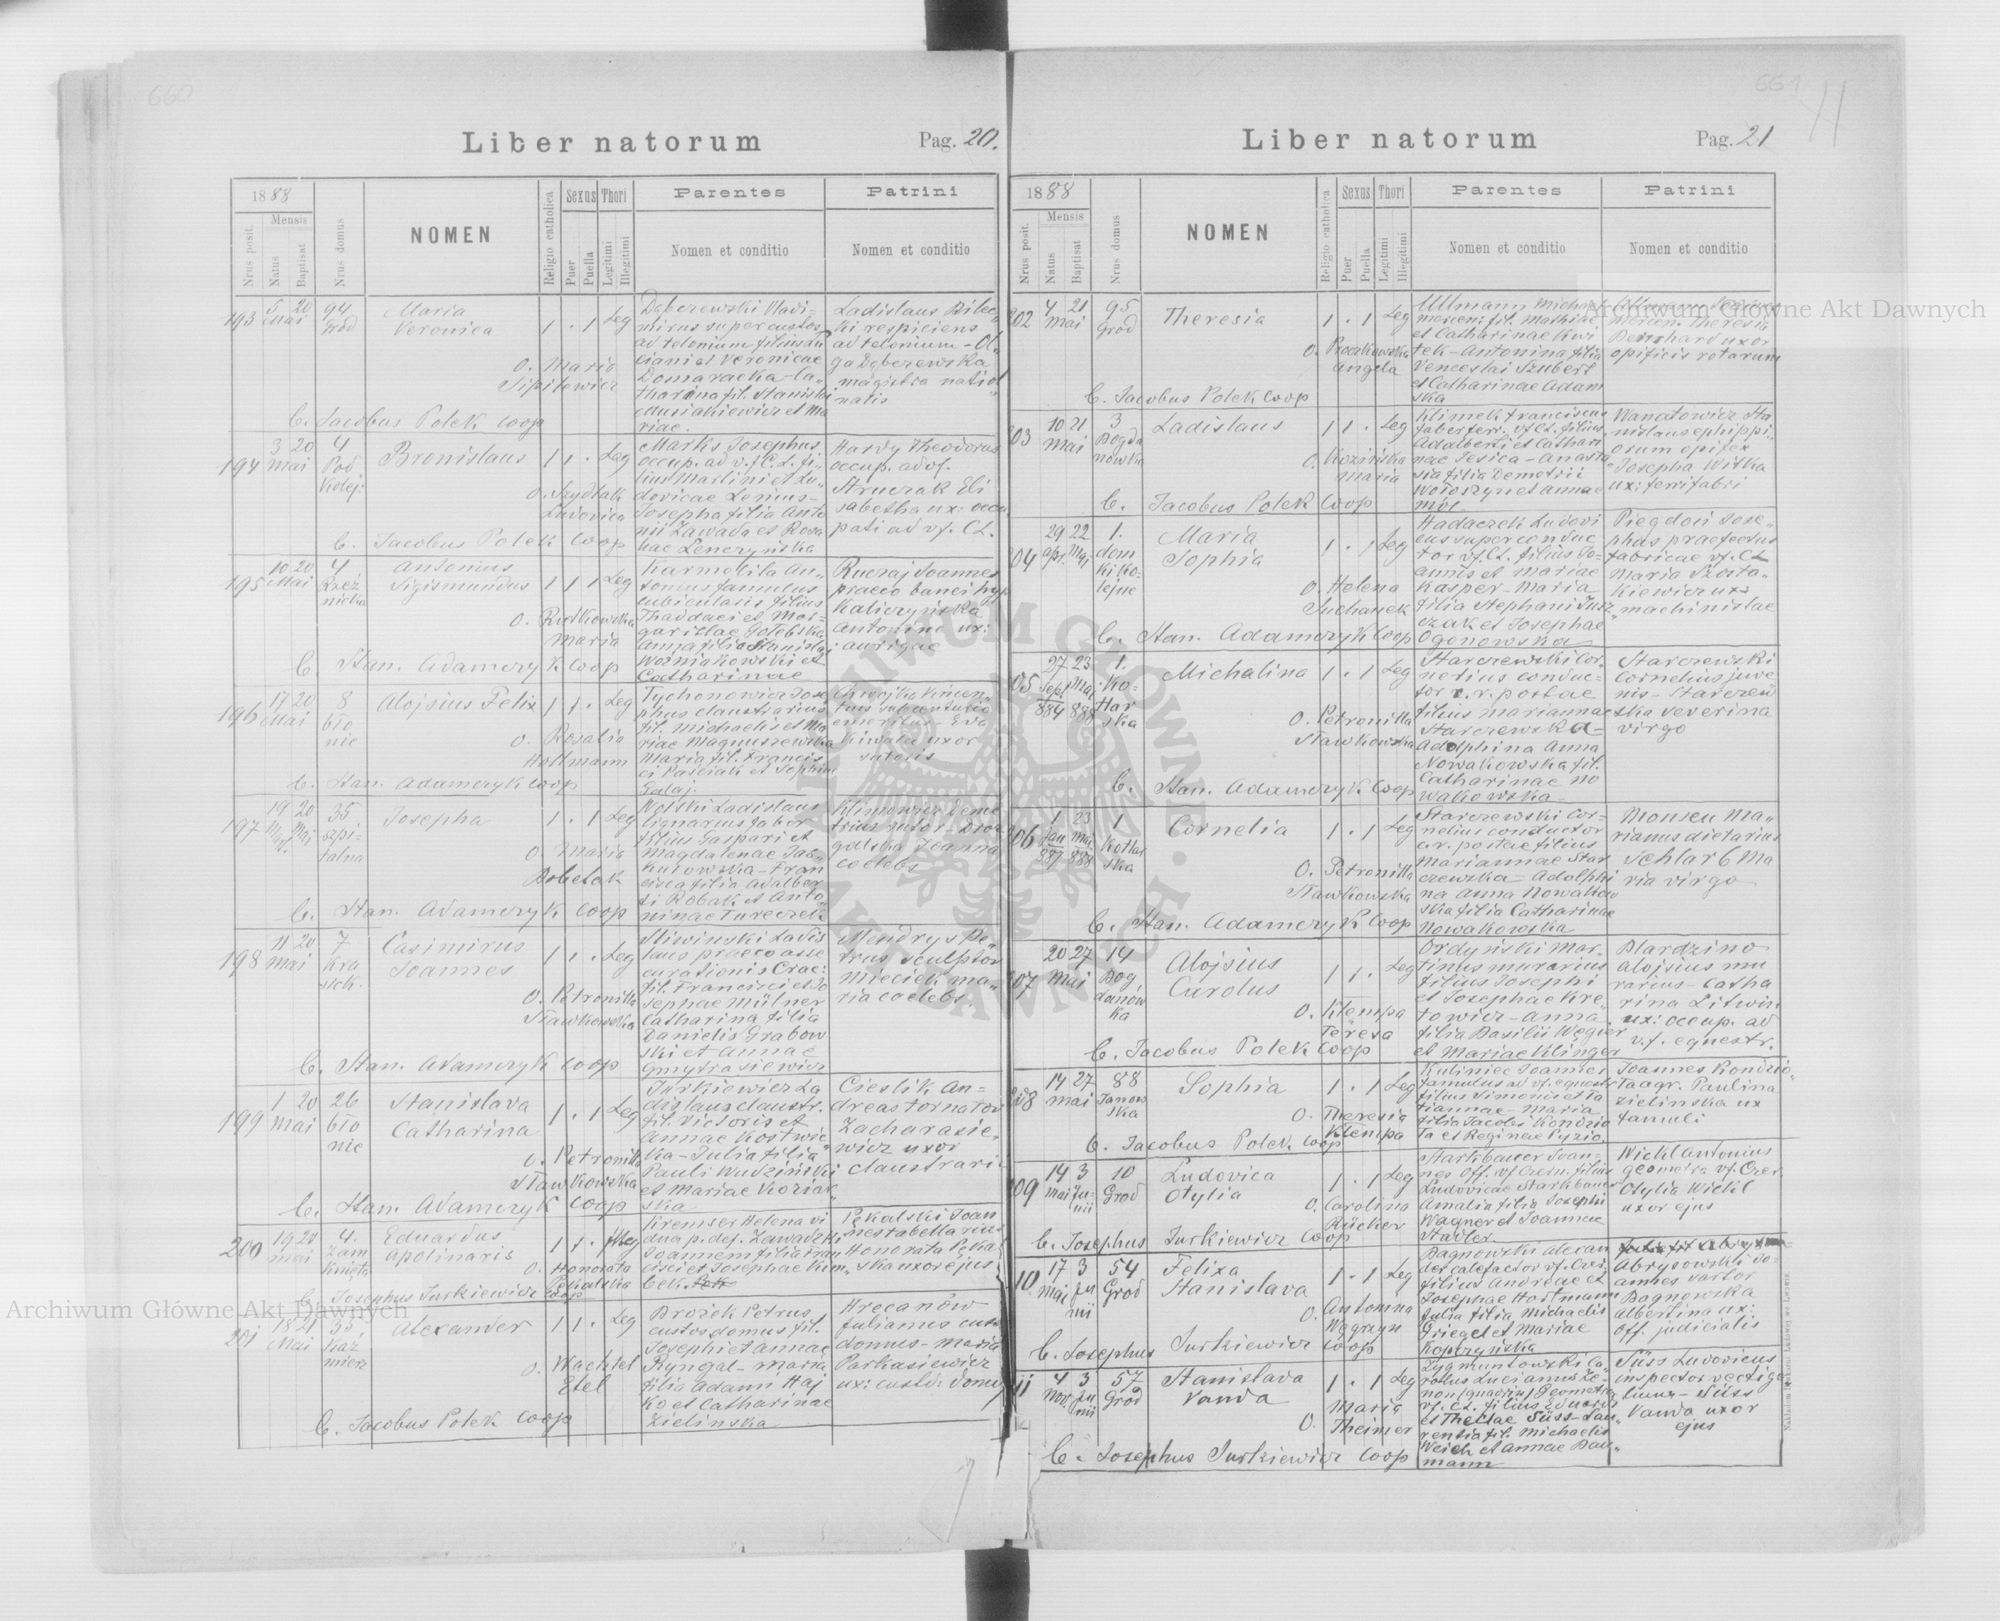 660
Liber natorum
Pag. 20.
1888
Mensis
Nrus posit.
Natus
Baptisat
Nrus domus
NOMEN
Religio catholica
Sexus
Puer
Puella
Thori
Legitimi
Illegitimi
Parentes
Nomen et conditio
Patrini
Nomen et conditio
193
5 20
Mai
94
Grod
Maria
Veronica
1 . 1 Leg
O. Maria
C. Jacobus Polek coop
Ladislaus
ki respiciens
ad telonium
magistra
194
3 20
Mai
4
Pod
Kolej.
Bronislaus
1 1 . Leg
O. Szydlak
Ludovica
C. Jacobus Polek Coop
Marks Josephus
occup. ad v.f. C.L. fi-
lius Martini et Lu-
dovicae
Josepha filia Anto
nii Zawada et Rosa
liae Lenczyńska
Hardy Theodorus
occup. ad vf.
Struczak Eli
sabetha ux: occu
pati ad vf. CL.
195
10 20
Mai
4
Rzeź
nicka
Antonius
Sigismundus
1 1 . Leg
O. Rutkowska
Maria
C. Stan. Adamczyk coop
tonius famulus
cubicularis filius
Thaddaei et Mar-
garithae Gołebska
Anna filia Stanislai
Woźniakowski et
Catharinae
Ruczaj Joannes
praeco banci hyp
Kaliczyńska
Antonina ux:
aurigae
196
17 20
Mai
8
Bło
nie
Alojsius Felix
1 1 . Leg
O. Rosalia
Hollmann
C. Stan. Adamczyk coop
Tychonowicz Jose
phus claustrarius
fil. Michaelis et Ma
riae Magnuszewska
Maria fil. Francis
ci Paściak et Sophiae
197
19 20
Mai
35
Szpi-
talna
Josepha
1 . 1 Leg
O. Maria
Bobelak
C. Stan. Adamczyk coop
lignarius faber
filius Gaspari et
Magdalenae Jas-
kułowska - Fran
cisca filia Adalber
ti Robak et Anto
ninae Tureczek
Klimowicz Deme
trius sutor
Joanna
coelebs
198
11 20
Mai
7
Kra
sick.
Casimirus
Joannes
1 1 . Leg
O. Petronilla
Stawkowska
C. Stan. Adamczyk coop
Sliwinski Ladis
laus praeco asse
curationis Crac:
fil. Francisci et Jo
sephae Mülner
Catharina filia
Danielis Grabow
ski et Annae
Gmytrasiewicz
Mendrys Pe-
trus sculptor
Mieciek Ma-
ria coelebs.
199
1 20
Mai
26
Bło
nie
Stanislava
Catharina
1 . 1 Leg
O. Petronilla
Stawkowska
C. Stan. Adamczyk coop
Turkiewicz La
dislaus claustr.
fil. Victoris et
Annae Kostwic
ka - Julia filia
Pauli Wudziński
et Mariae Koziar
ska
Cieslik An=
dreas tornator
Zacharasie-
wicz uxor
claustrarii
200
19 20
Mai
4.
Zam
knięta
Eduardus
Apolinaris
1 1 . Illeg
O. Honorata
Pękalska
C. Josephus Turkiewicz coop
Kremser Helena vi
dua p. def. Zawadzki
Joannem filia Fran
cisci et Josephae Kum
bek
Pękalski Joan
nes tabellarius
Honorata Pękal
ska uxor ejus
201
18 21
Mai
33
Kaź
mierz
Alexander
1 1 . Leg
O. Wachtel
Etel
C. Jacobus Polek coop
Brożek Petrus
custos domus fil.
Josephi et Annae
Ryngal - Maria
filia Adami Haj
ko et Catharinae
Zielinska
Hrecanów
Julianus custo
domus - Maria
Parkasiewicz
ux: custo: domus
661
Liber natorum
Pag. 21
1888
Mensis
Nrus posit.
Natus
Baptisat
Nrus domus
NOMEN
Religio catholica
Sexus
Puer
Puella
Thori
Legitimi
Illegitimi
Parentes
Nomen et conditio
Patrini
Nomen et conditio
02
4 21
Mai
95
Grod
Theresia
1 . 1 Leg
O. Proczkowska
Angela
C. Jacobus Polek coop
Ullmann Michael
mercen: fil. Mathiae
et Catharinae Kwi
tek - Antonina filia
Venceslai Szubert
et Catharinae Adam
ska
Theresia
Bernhard uxor
opificis rotarum
03
10 21
Mai
3
Bogda
nówka
Ladislaus
1 1 . Leg
O. Kozińska
Maria
C. Jacobus Polek Coop
Klimek Franciscus
faber ferr. vf CL filius
Adalberti et Cathari
nae Jesica - Anasta
sia filia Demetrii
Wołoszyn et Annae
Wanatowicz Sta
nislaus ephippi-
orum opifex
Josepha Witka
ux: ferrifabri
04
29 22
Apr. Mai
1.
dom
ki ko-
lejne
Maria
Sophia
1 . 1 Leg
O. Helena
Suchanek
C. Stan. Adamczyk Coop
Hadaczek Ludovi
cus superconduc
tor vf CL. filius Jo-
annis et Mariae
Kasper - Maria
filia Stephani Jusz
czak et Josephae
Ogonowska
Piegdoń Jose-
phus praefectus
fabricae vf. CL
Maria Szosta-
kiewicz uxs
machinistae
05
27 23
Sept Mai
884 888
1.
Ko-
tlar
ska
Michalina
1 . 1 Leg
O. Petronilla
Stawkowska
C. Stan. Adamczyk Coop
Starczewski Cor-
nelius conduc-
tor c.r. postae
filius Mariannae
Starczewska -
Adolphina Anna
Nowakowska fil.
Catharinae No
wakowska
Starczewski
Cornelius juve-
nis - Starczew
ska Severina
virgo
06
1 23
Jan Mai
887 888
1
Kotlar
ska
Cornelia
1 . 1 Leg
O. Petronilla
Stawkowska
C. Stan. Adamczyk Coop
Starczewski Cor-
nelius conductor
c.r. postae filius
Mariannae Star
czewska - Adolphi
na Anna Nowakow
ska filia Catharinae
Nowakowska
Monseu Ma-
rianus dietarius
Schlarb Ma
ria virgo
07
20 27
Mai
14
Bog
danów
ka
Alojsius
Carolus
1 1 . Leg
O. Klempa
Teresa
C. Jacobus Polek coop
Ordyński Mar-
tinus murarius
filius Josephi
et Josephae Kre-
towicz - Anna
filia Basilii Wegner
et Mariae Klinger
Blardzino
Alojsius mu
rarius - Catha
rina Litwin
ux: occup. ad
v.f. equestr.
08
14 27
Mai
88
Janow
ska
Sophia
1 . 1 Leg
O. Theresia
Klempa
C. Jacobus Polek coop
Kuliniec Joannes
famulus ad vf. equestr
filius Simonis et Ta
tiannae - Maria
filia Jacobi Kondzio
ła et Reginae Pyzio
Joannes Kondzio-
ła agr. Paulina
Zielinska ux
famuli
09
14 3
Mai Ju-
nii
10
Grod
Ludovica
Otylia
1 . 1 Leg
O. Carolina
Rücker
C. Josephus Turkiewicz Coop
Starkbauer Joan-
nes Off. vf Czern. filius
Ludovicae Starkbauer
Amalia filia Josephi
Wagner et Joannae
Stadler
Wickl Antonius
geometra vf. Czer.
Otylia Wickl
uxor ejus
10
17 3
Mai Ju
nii
54
Grod
Felixa
Stanislava
1 . 1 Leg
O. Antonina
Węgrzyn
C. Josephus Turkiewicz coop
Bagnowski Alexan
der calefactor vf. Czer.
filius Andreae et
Josephae Hartmann
Julia filia Michaelis
Griegel et Mariae
Kopczyńska
Abrysowski Jo-
annes sartor
Bagnowska
Albertina ux:
off. judicialis
11
4 3
Nov. Ju
nii
57
Grod
Stanislava
Vanda
1 . 1 Leg
O. Maria
Theimer
C. Josephus Turkiewicz Coop
Zygmuntowski Ca-
rolus Lucianus Ze-
non (quadrin) Geometra
vf. CL. filius Eduardi
et Theklae Süss - Lau-
rentia fil. Michaelis
Weich et Annae Bau-
mann
Süss Ludovicus
inspector vectiga
lium - Süss
Vanda uxor
ejus
Archiwum Główne Akt Dawnych
Archiwum Główne Akt Dawnych
ARCHIWUM GŁÓWNE AKT DAWNYCH